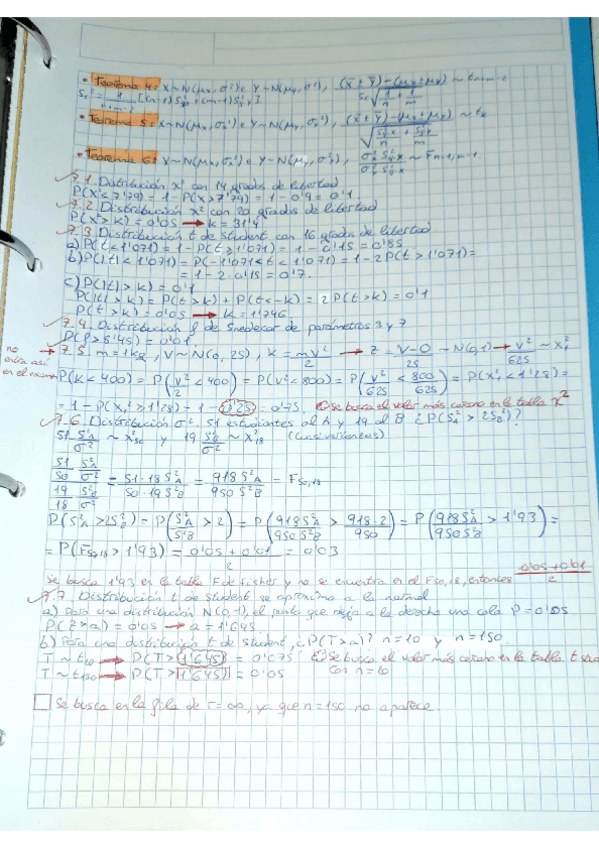 • Teorema 4: X~N(μx, σ²) e Y~N(μy, σ²), (x̄+ȳ)-(μx+μy) / Sc√(1/n + 1/m) ~ tn+m-2
Sc² = 1/(n+m-2) [(n-1)S²x + (m-1)S²y]
• Teorema 5: X~N(μx, σ²) e Y~N(μy, σ²), (x̄+ȳ)-(μx+μy) / √(S²x/n + S²y/m) ~ t
• Teorema 6: X~N(μx, σ²) e Y~N(μy, σ²), ~ Fn-1, m-1
7.1. Distribución x² con 14 grados de libertad
P(X<7'79) = 1-P(X>7'79) = 1-0'9 = 0'1
7.2. Distribución x² con 20 grados de libertad
P(x²>k) = 0'05 → k = 31'4
7.3. Distribución t de Student con 16 grados de libertad
a) P(t<1'071) = 1-P(t>1'071) = 1-0'15 = 0'85
b) P(|t|<1'071) = P(-1'071<t<1'071) = 1-2P(t>1'071) =
= 1-2·0'15 = 0'7.
c) P(|t|>k) = 0'1
P(|t|>k) = P(t>k) + P(t<-k) = 2P(t>k) = 0'1
P(t>k) = 0'05 → k = 1'746.
7.4. Distribución f de Snedecor de parámetros 3 y 7
P(f>8'45) = 0'01.
no entra así en el examen → 7.5. m = 1kg, V~N(0, 25), k = mv²/2 → Z = V-0/25 ~ N(0,1) → v²/625 ~ x²1
P(k<400) = P(v²/2 < 400) = P(v²<800) = P(v²/625 < 800/625) = P(x²1 < 1'28) =
= 1-P(x1² ≥ 1'28) = 1-0'25 = 0'75. Se busca el valor más cercano en la tabla x²
7.6. Distribución σ². 51 estudiantes al A y 19 al B ¿P(S²A > 2S²B)?
51 S²A/σ² ~ x²50 y 19 S²B/σ² ~ x²18 (cuasivarianzas)
51/50 S²A/σ² / 19/18 S²B/σ² = 51·18S²A / 50·19S²B = 918S²A / 950S²B = F50,18
P(S²A > 2S²B) = P(S²A/S²B > 2) = P(918S²A/950S²B > 918·2/950) = P(918S²A/950S²B > 1'93) =
= P(F50,18 > 1'93) = 0'05+0'01 / 2 = 0'03
Se busca 1'93 en la tabla F de Fisher y no se encuentra en el F50,18, entonces 0'05+0'01 / 2
7.7. Distribución t de Student se aproxima a la normal
a) Para una distribución N(0,1), el punto que deja a la derecha una cola P=0'05
P(Z>a) = 0'05 → a = 1'645
b) Para una distribución t de Student, ¿P(T>a)? n=10 y n=150
T ~ t10 → P(T>1'645) = 0'075 Se busca el valor más cercano en la tabla t student
con n=10
T ~ t150 → P(T>1'645) = 0'05
Se busca en la fila de r=∞, ya que n=150 no aparece.